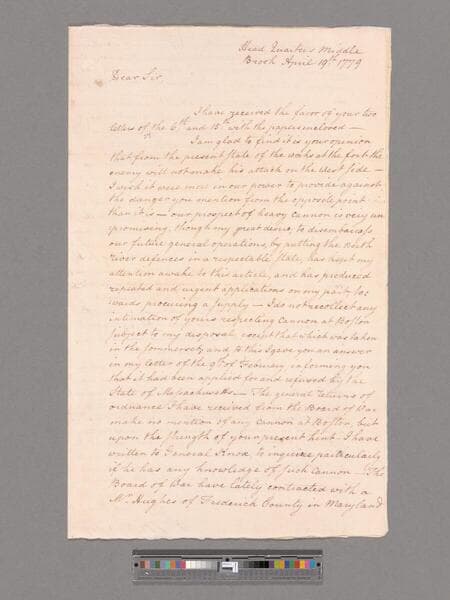 Head Quarters Middle
Brook April 19th 1779
Dear Sir
I have received the favor of your two
letters of the 6th and 15th with the papers enclosed —
I am glad to find it is your opinion
that from the present state of the works at the fort the
enemy will not make his attack on the West side —
I wish it were more in our power to provide against
the danger you mention from the opposite point
than it is — our prospect of heavy cannon is very un
promising, though my great desire, to disembarrass
our future general operations, by putting the North
River defences in a respectable state, has kept my
attention awake to this article, and has produced
repeated and urgent applications on my part to-
wards procuring a supply — I do not recollect any
intimation of yours respecting Cannon at Boston
subject to my disposal except that which was taken
in the Sommerset; and to this I gave you an answer
in my letter of the 9th of February informing you
that it had been applied for and refused by the
State of Massachusetts — The general returns of
ordnance I have received from the Board of War
make no mention of any cannon at Boston, but
upon the strength of your present hint I have
written to General Knox to inquire particularly
if he has any knowledge of such Cannon — The
Board of War have lately contracted with a
Mr Hughes of Frederick County in Maryland